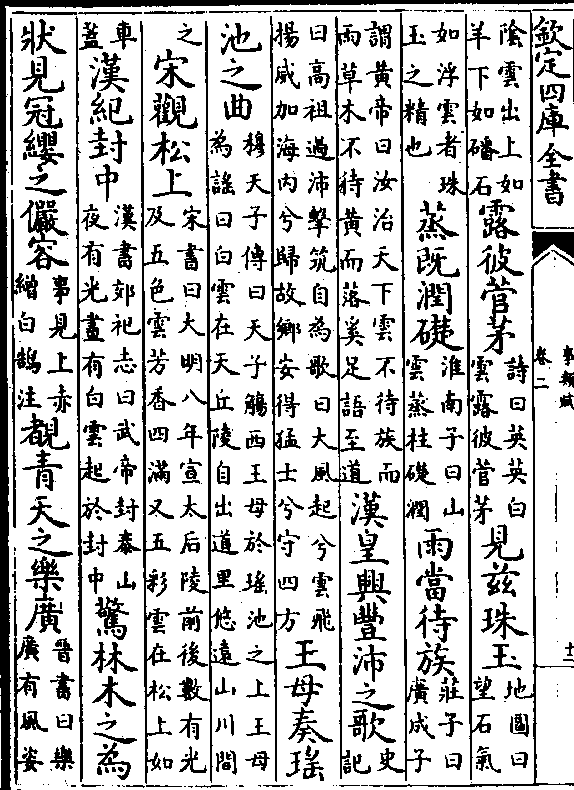 欽定四庫全書
事類賦
卷二
十二
陰雲出上如羊下如磻石露彼菅茅詩曰英英白雲露彼菅茅見兹珠玉地圖曰望石氣
如浮雲者珠玉之精也蒸既潤礎淮南子曰山雲蒸柱礎潤雨當待族莊子曰廣成子
謂黄帝曰汝治天下雲不待族而雨草木不待黄而落奚足語至道漢皇興豐沛之歌史記
曰高祖過沛擊筑自為歌曰大風起兮雲飛揚威加海内兮歸故鄉安得猛士兮守四方王母奏瑶
池之曲穆天子傳曰天子觴西王母於瑶池之上王母為謡曰白雲在天丘陵自出道里悠遠山川間
之宋觀松上宋書曰大明八年宣太后陵前後數有光及五色雲芳香四滿又五彩雲在松上如
車蓋漢紀封中漢書郊祀志曰武帝封泰山夜有光晝有白雲起於封中驚林木之為
狀見冠纓之儼容事見上赤繒白鵠注覩青天之樂廣晉書曰樂廣有風姿